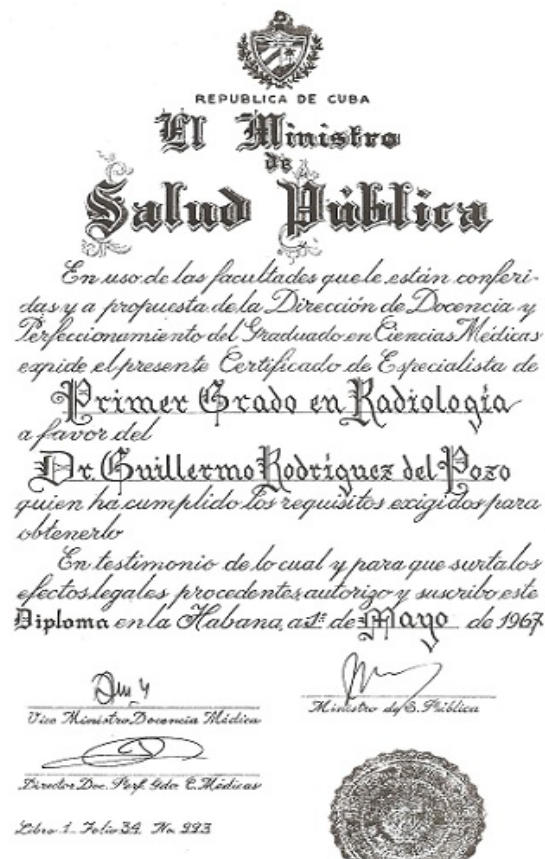 REPUBLICA DE CUBA
El Ministro
de
Salud Pública
En uso de las facultades que le están conferi-
das y a propuesta de la Dirección de Docencia y
Perfeccionamiento del Graduado en Ciencias Médicas
expide el presente Certificado de Especialista de
Primer Grado en Radiología
a favor del
Dr. Guillermo Rodríguez del Pozo
quien ha cumplido los requisitos exigidos para
obtenerlo
En testimonio de lo cual y para que surta los
efectos legales procedentes autorizo y suscribo este
Diploma en la Habana, a 1º de Mayo de 1967
Vice Ministro Docencia Médica
Ministro de S. Pública
Director Doc. Perf. Gdo. C. Médicas
Libro 1 Folio 34 No. 993